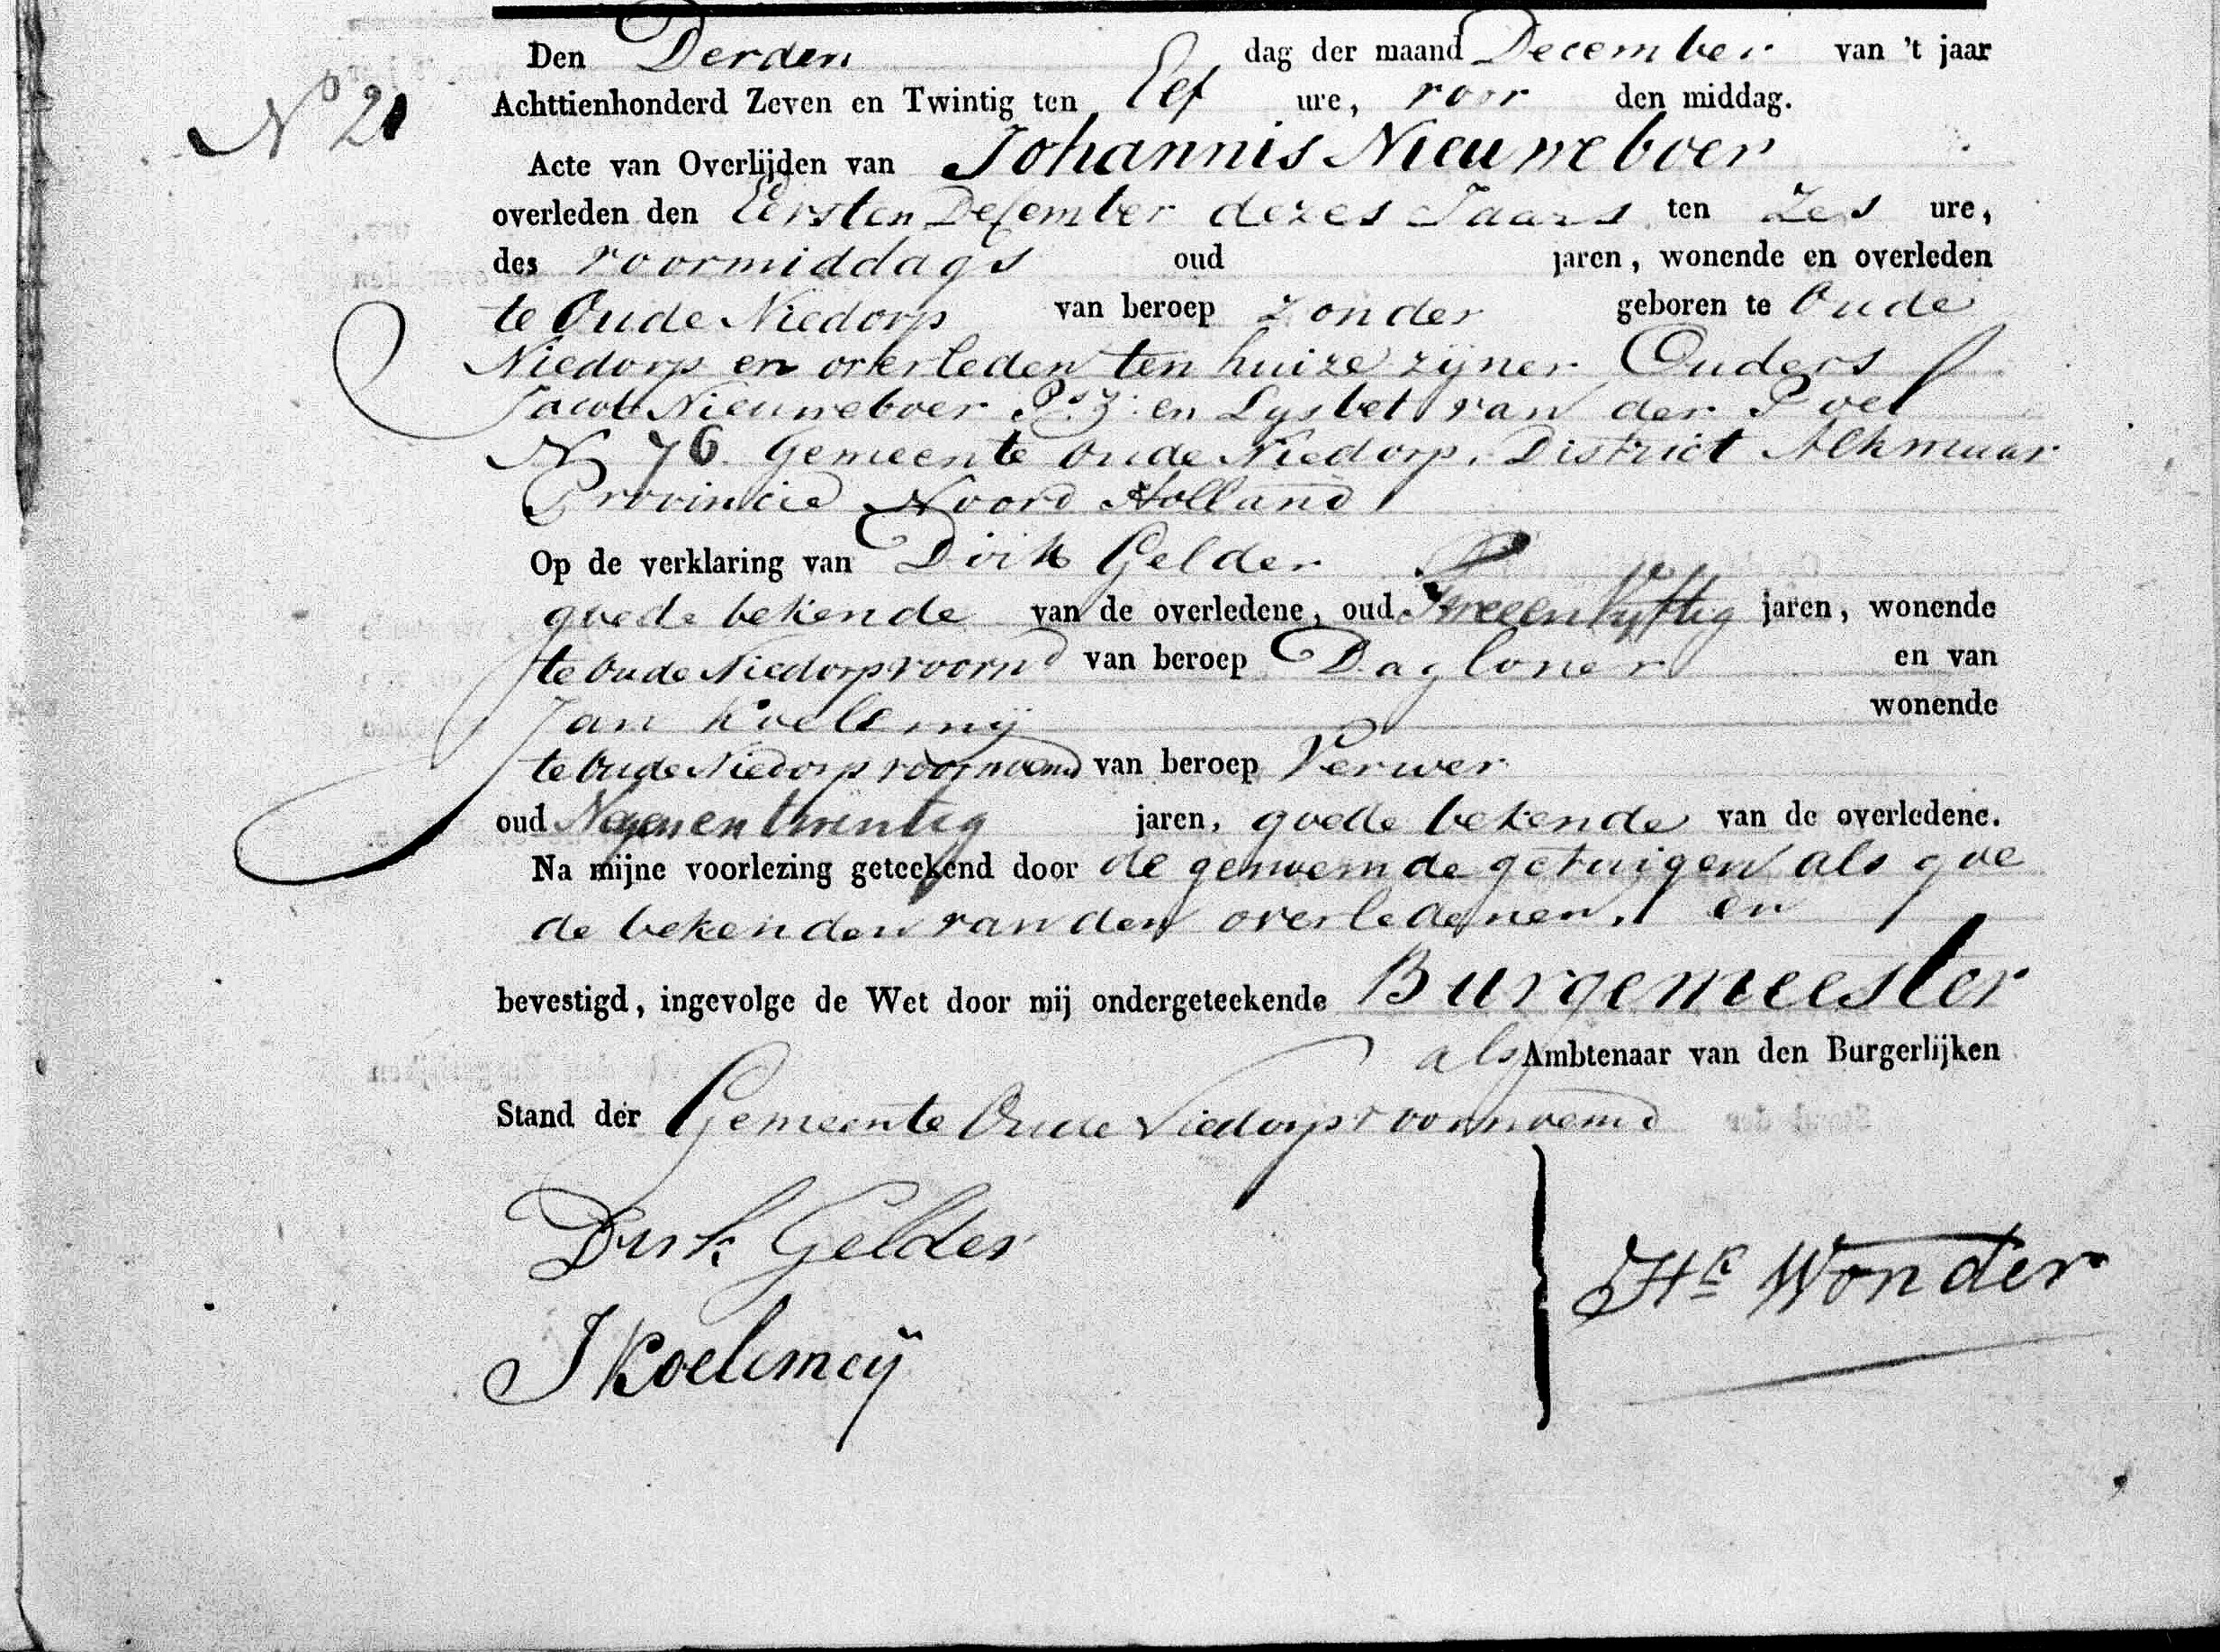 Den Derden dag der maand December van 't jaar
No 21
Achttienhonderd Zeven en Twintig ten Elf ure, voor den middag.
Acte van Overlijden van Johannis Nieuweboer
overleden den Eersten December dezes Jaars ten Zes ure,
des voormiddags oud jaren, wonende en overleden
te Oude Niedorp van beroep zonder geboren te Oude
Niedorp en overleden ten huize zijner Ouders
Jacob Nieuweboer Ps. Z: en Lysbet van der Poel
N 76. Gemeente oude Niedorp. District Alkmaar
Provincie Noord Holland
Op de verklaring van Dirk Gelder
goede bekende van de overledene, oud Tweeenvyftig jaren, wonende
te Oude Niedorp voornd van beroep Dagloner en van
Jan Koelemij wonende
te Oude Niedorp voornoemd van beroep Verwer
oud Negenentwintig jaren, goede bekende van de overledene.
Na mijne voorlezing geteekend door de genoemde getuigen als goe
de bekenden van den overledenen. en
bevestigd, ingevolge de Wet door mij ondergeteekende Burgemeester
als Ambtenaar van den Burgerlijken
Stand der Gemeente Oude Niedorp voornoemd
Dirk Gelder
J Koelemeij
Hk Wonder